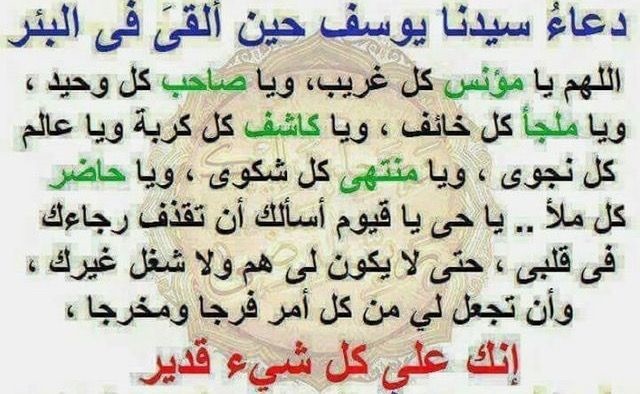 دعاءُ سيدنا يوسف حين ألقىَ فى البئر
اللهم يا مؤنس كل غريب، ويا صاحب كل وحيد ،
ويا ملجأ كل خائف ، ويا كاشف كل كربة ويا عالم
كل نجوى ، ويا منتهى كل شكوى ، ويا حاضر
كل ملأ .. يا حى يا قيوم أسألك أن تقذف رجاءك
فى قلبى ، حتى لا يكون لى هم ولا شغل غيرك ،
وأن تجعل لي من كل أمر فرجا ومخرجا ،
إنك على كل شيء قدير